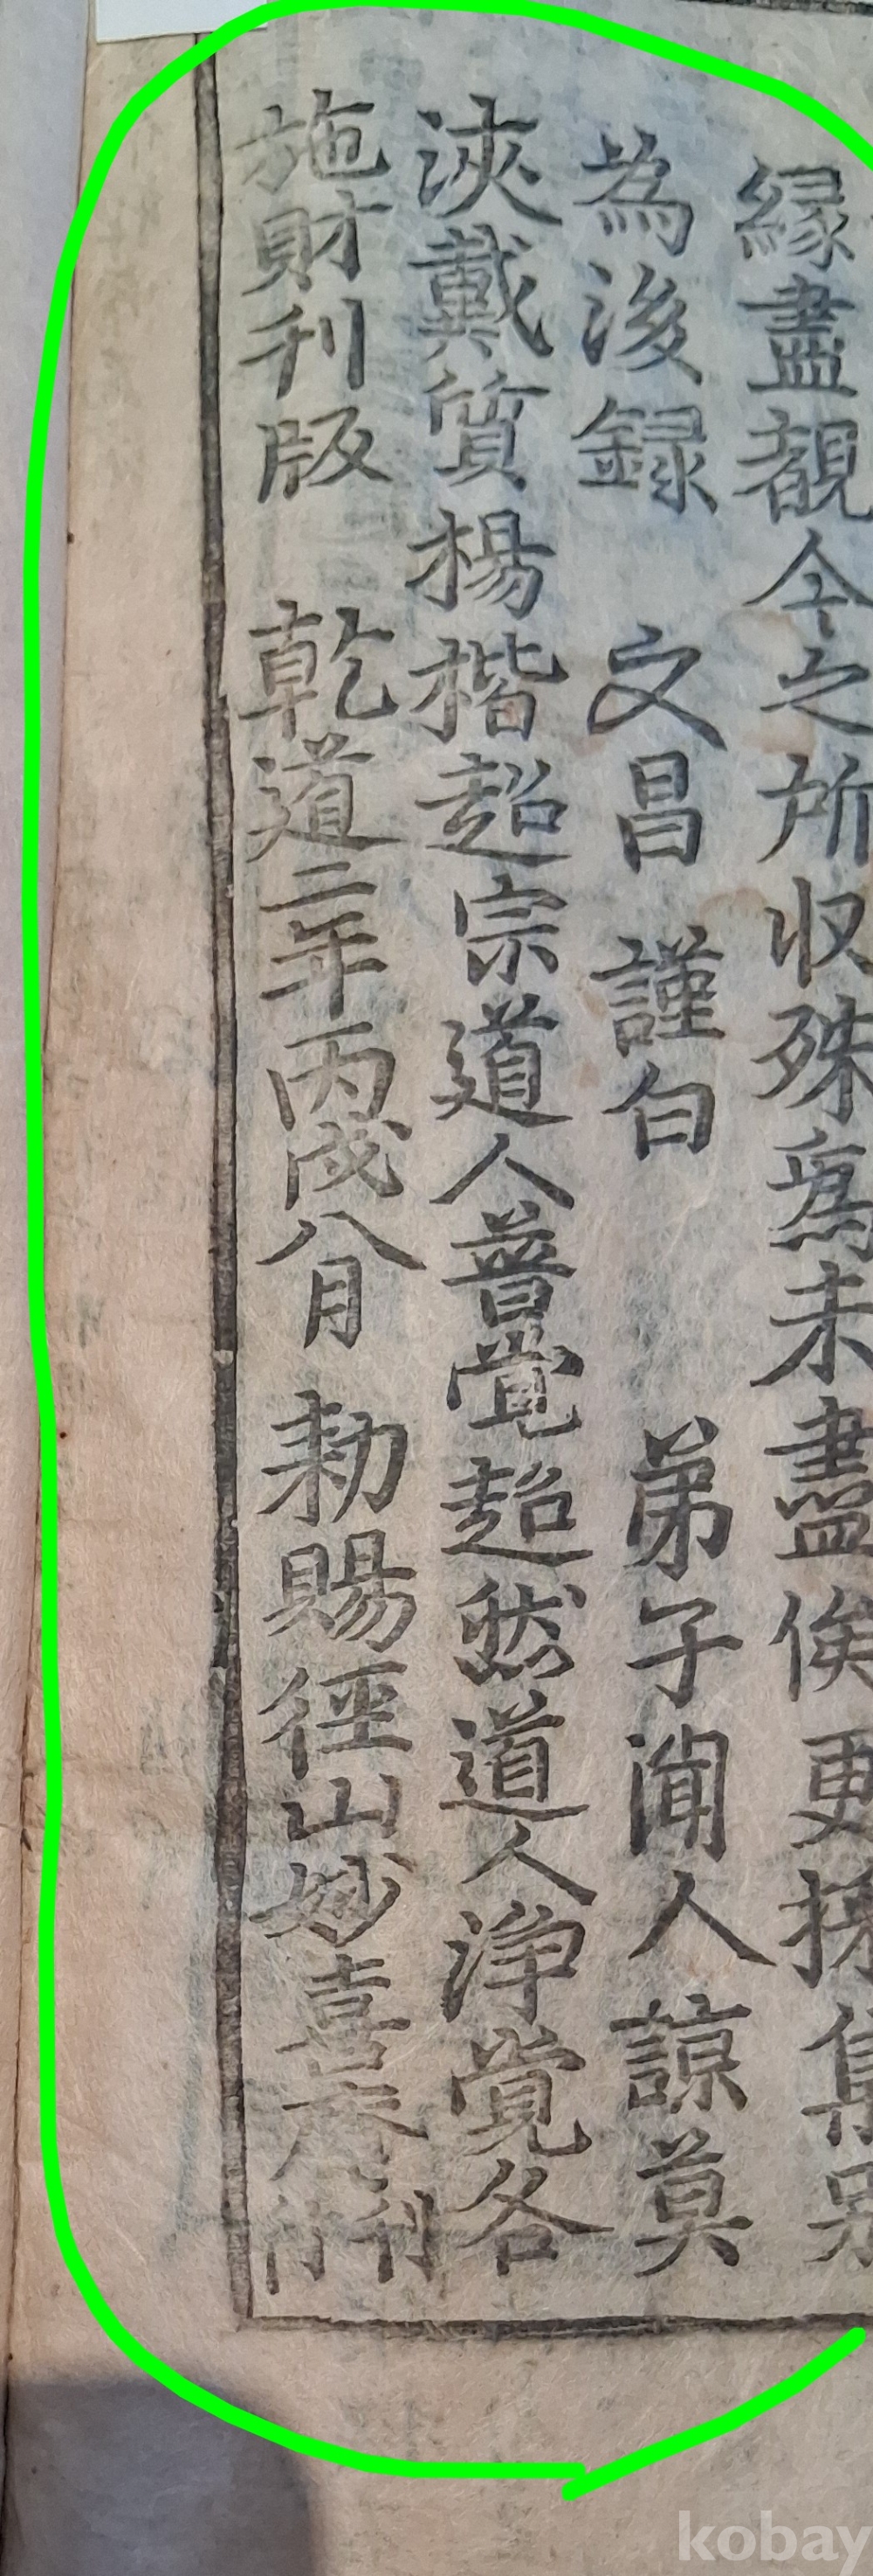 縁盡覩今之所收殊爲未盡俟更採集別
為後錄 文昌 謹白 弟子聞人諒莫
浹戴質楊楷超宗道人普覺超然道人淨覺各
施財刊版 乾道二年丙戌八月 勑賜徑山妙喜庵刊行
kobay